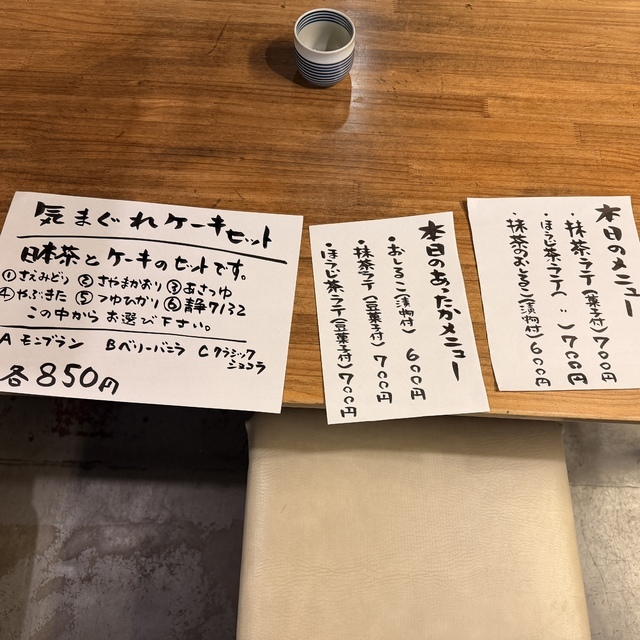 気まぐれケーキセット
日本茶とケーキのセットです。
①さえみどり ②さやまかおり ③あさつゆ
④やぶきた ⑤つゆひかり ⑥静7132
この中からお選び下さい。
A モンブラン B ベリーバニラ C クラシックショコラ
各850円
本日のあったかメニュー
・おしるこ(漬物付) 600円
・抹茶ラテ(豆菓子付) 700円
・ほうじ茶ラテ(豆菓子付) 700円
本日のメニュー
・抹茶ラテ(菓子付) 700円
・ほうじ茶ラテ( 〃 ) 700円
・抹茶のおしるこ(漬物付) 600円